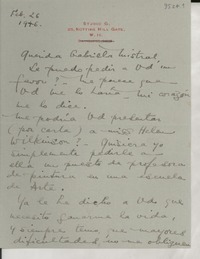 Feb. 26
1946.
STUDIO 6,
NOTTING HILL GATE,
W. 11.
Querida Gabriela Mistral,
Le puedo pedir a Vd. un
favor? - Me parece que
Vd. me lo haría - mi corazón
me lo dice.
me podría Vd presentar
(por carta) a miss Helen
Wilkinson? - Quisiera yo
simplemente pedirle a
ella un puesto de profesora
de pintura en una escuela
de Arte.
Ya le he dicho a Vd que
necesito ganarme la vida,
y siempre temo que mayores
dificultades me obliguen